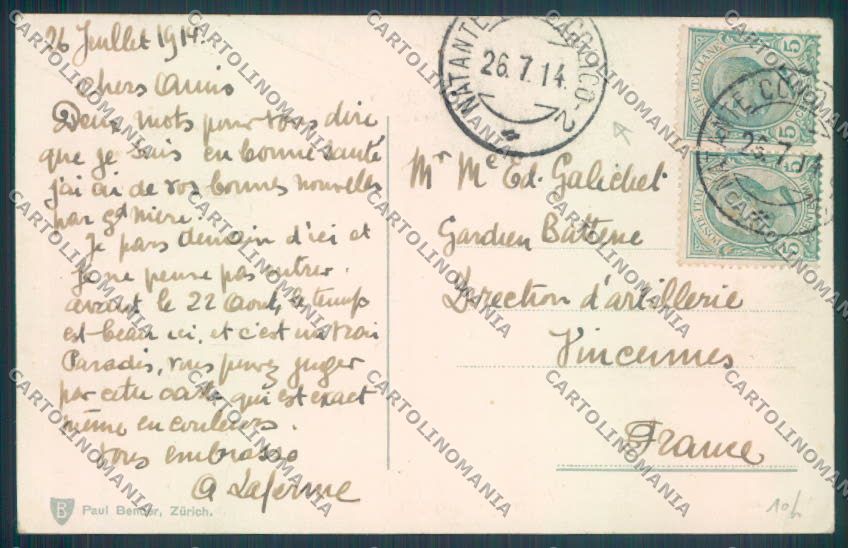 26 Juillet 1914.
Chers Amis
Deux mots pour vous dire
que je suis en bonne santé
j'ai eu de vos bonnes nouvelles
par gd mère.
Je pars demain d'ici et
je ne pense pas rentrer
avant le 22 Aout, le temps
est beau ici, et c'est un vrai
Paradis, vous pouvez juger
par cette carte qui est exact
même en couleurs.
Vous embrasse
A Laferme
Paul Bender, Zürich.
NATANTE COLICO-2
26.7.14.
Mr Me Ed. Galichet
Gardien Batterie
Direction d'artillerie
Vincennes
France
POSTE ITALIANE
5
5
NATANTE CO
26.7.14
POSTE ITALIANE
5
5
CARTOLINOMANIA